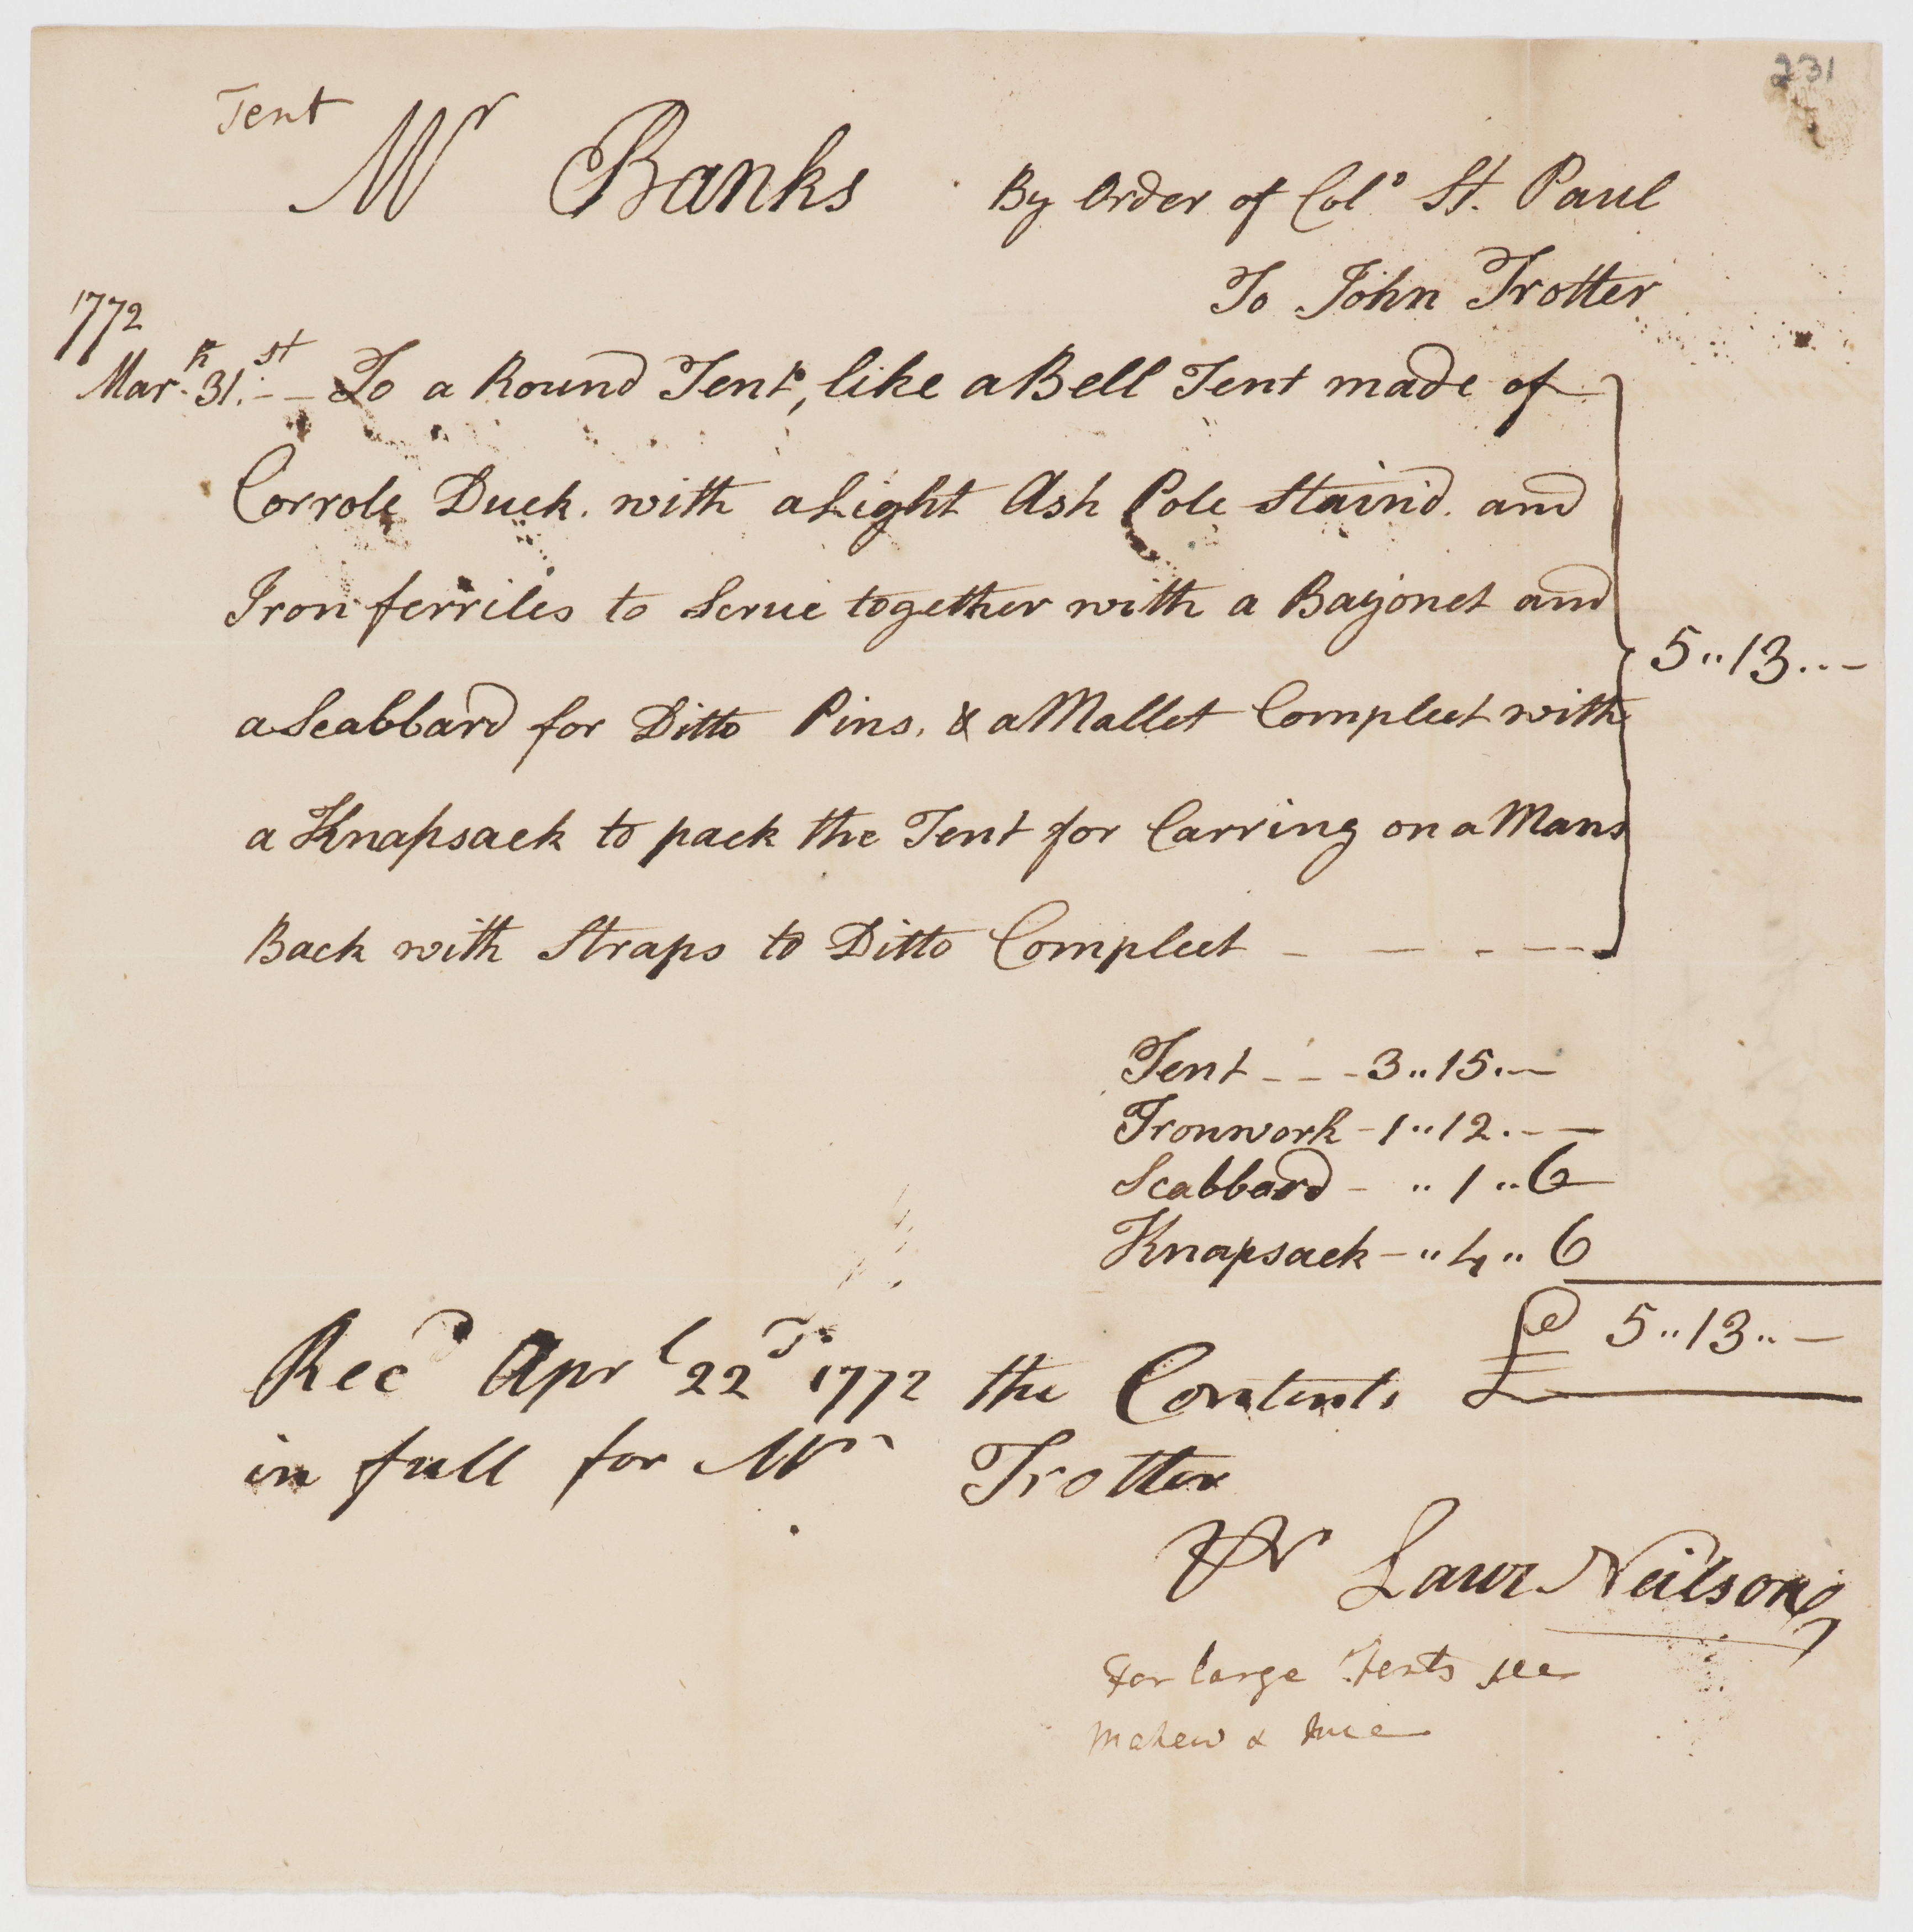 231
Tent
Mr Banks By Order of Colo St. Paul
To John Trotter
1772
Marh. 31st. - - To a Round Tent, like a Bell Tent made of
Corrole Duck. with a Light Ash Pole Stain'd. and
Iron ferriles to Scrue together with a Bayonet and
a Scabbard for Ditto Pins, & a Mallet Compleet with
a Knapsack to pack the Tent for Carring on a Mans
Back with Straps to Ditto Compleet - - - -
5..13..-
Tent - - - 3..15.-
Ironwork - 1..12.-
Scabbard - ..1..6
Knapsack - ..4..6
£ 5..13..-
Recd Aprl 22d 1772 the Contents
in full for Mr Trotter
Pr Laur Neilson
For large Tents see
&